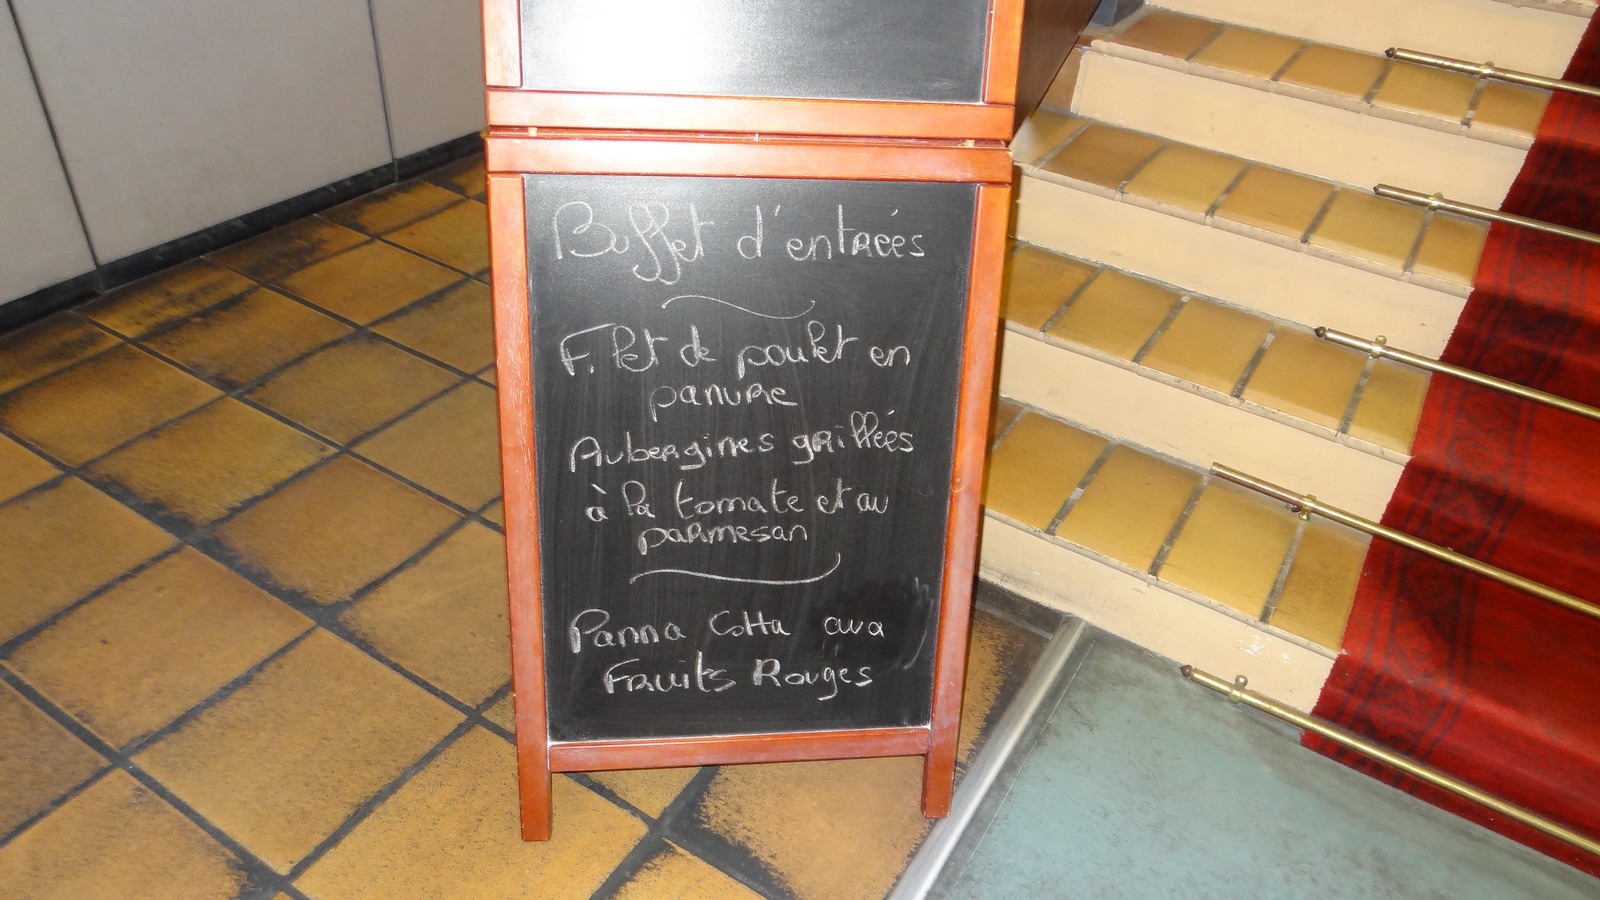 Buffet d'entrées
Filet de poulet en
panure
Aubergines grillées
à la tomate et au
parmesan
Panna Cotta aux
Fruits Rouges